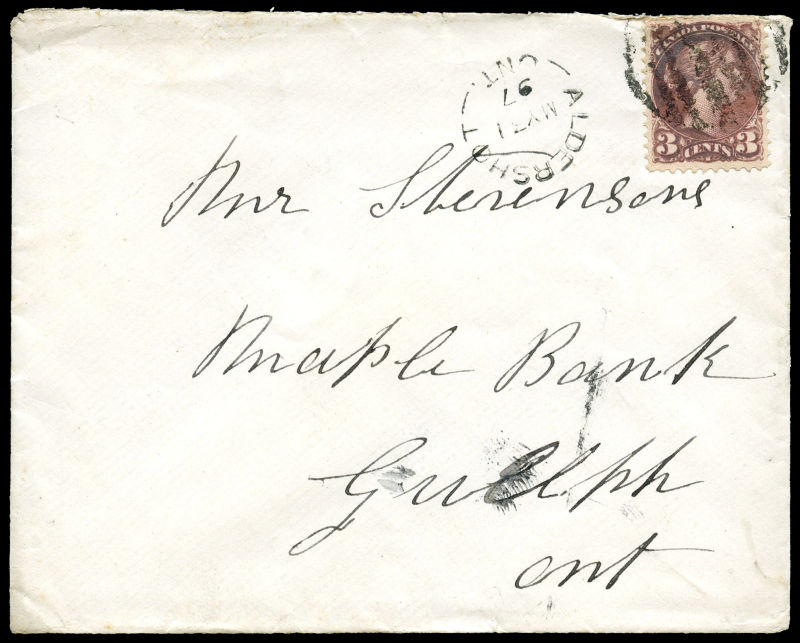 CANADA POSTAGE
3 CENTS 3
ALDERSHOT ONT
MY 31
97
Mr Stevensons
Maple Bank
Guelph
ont